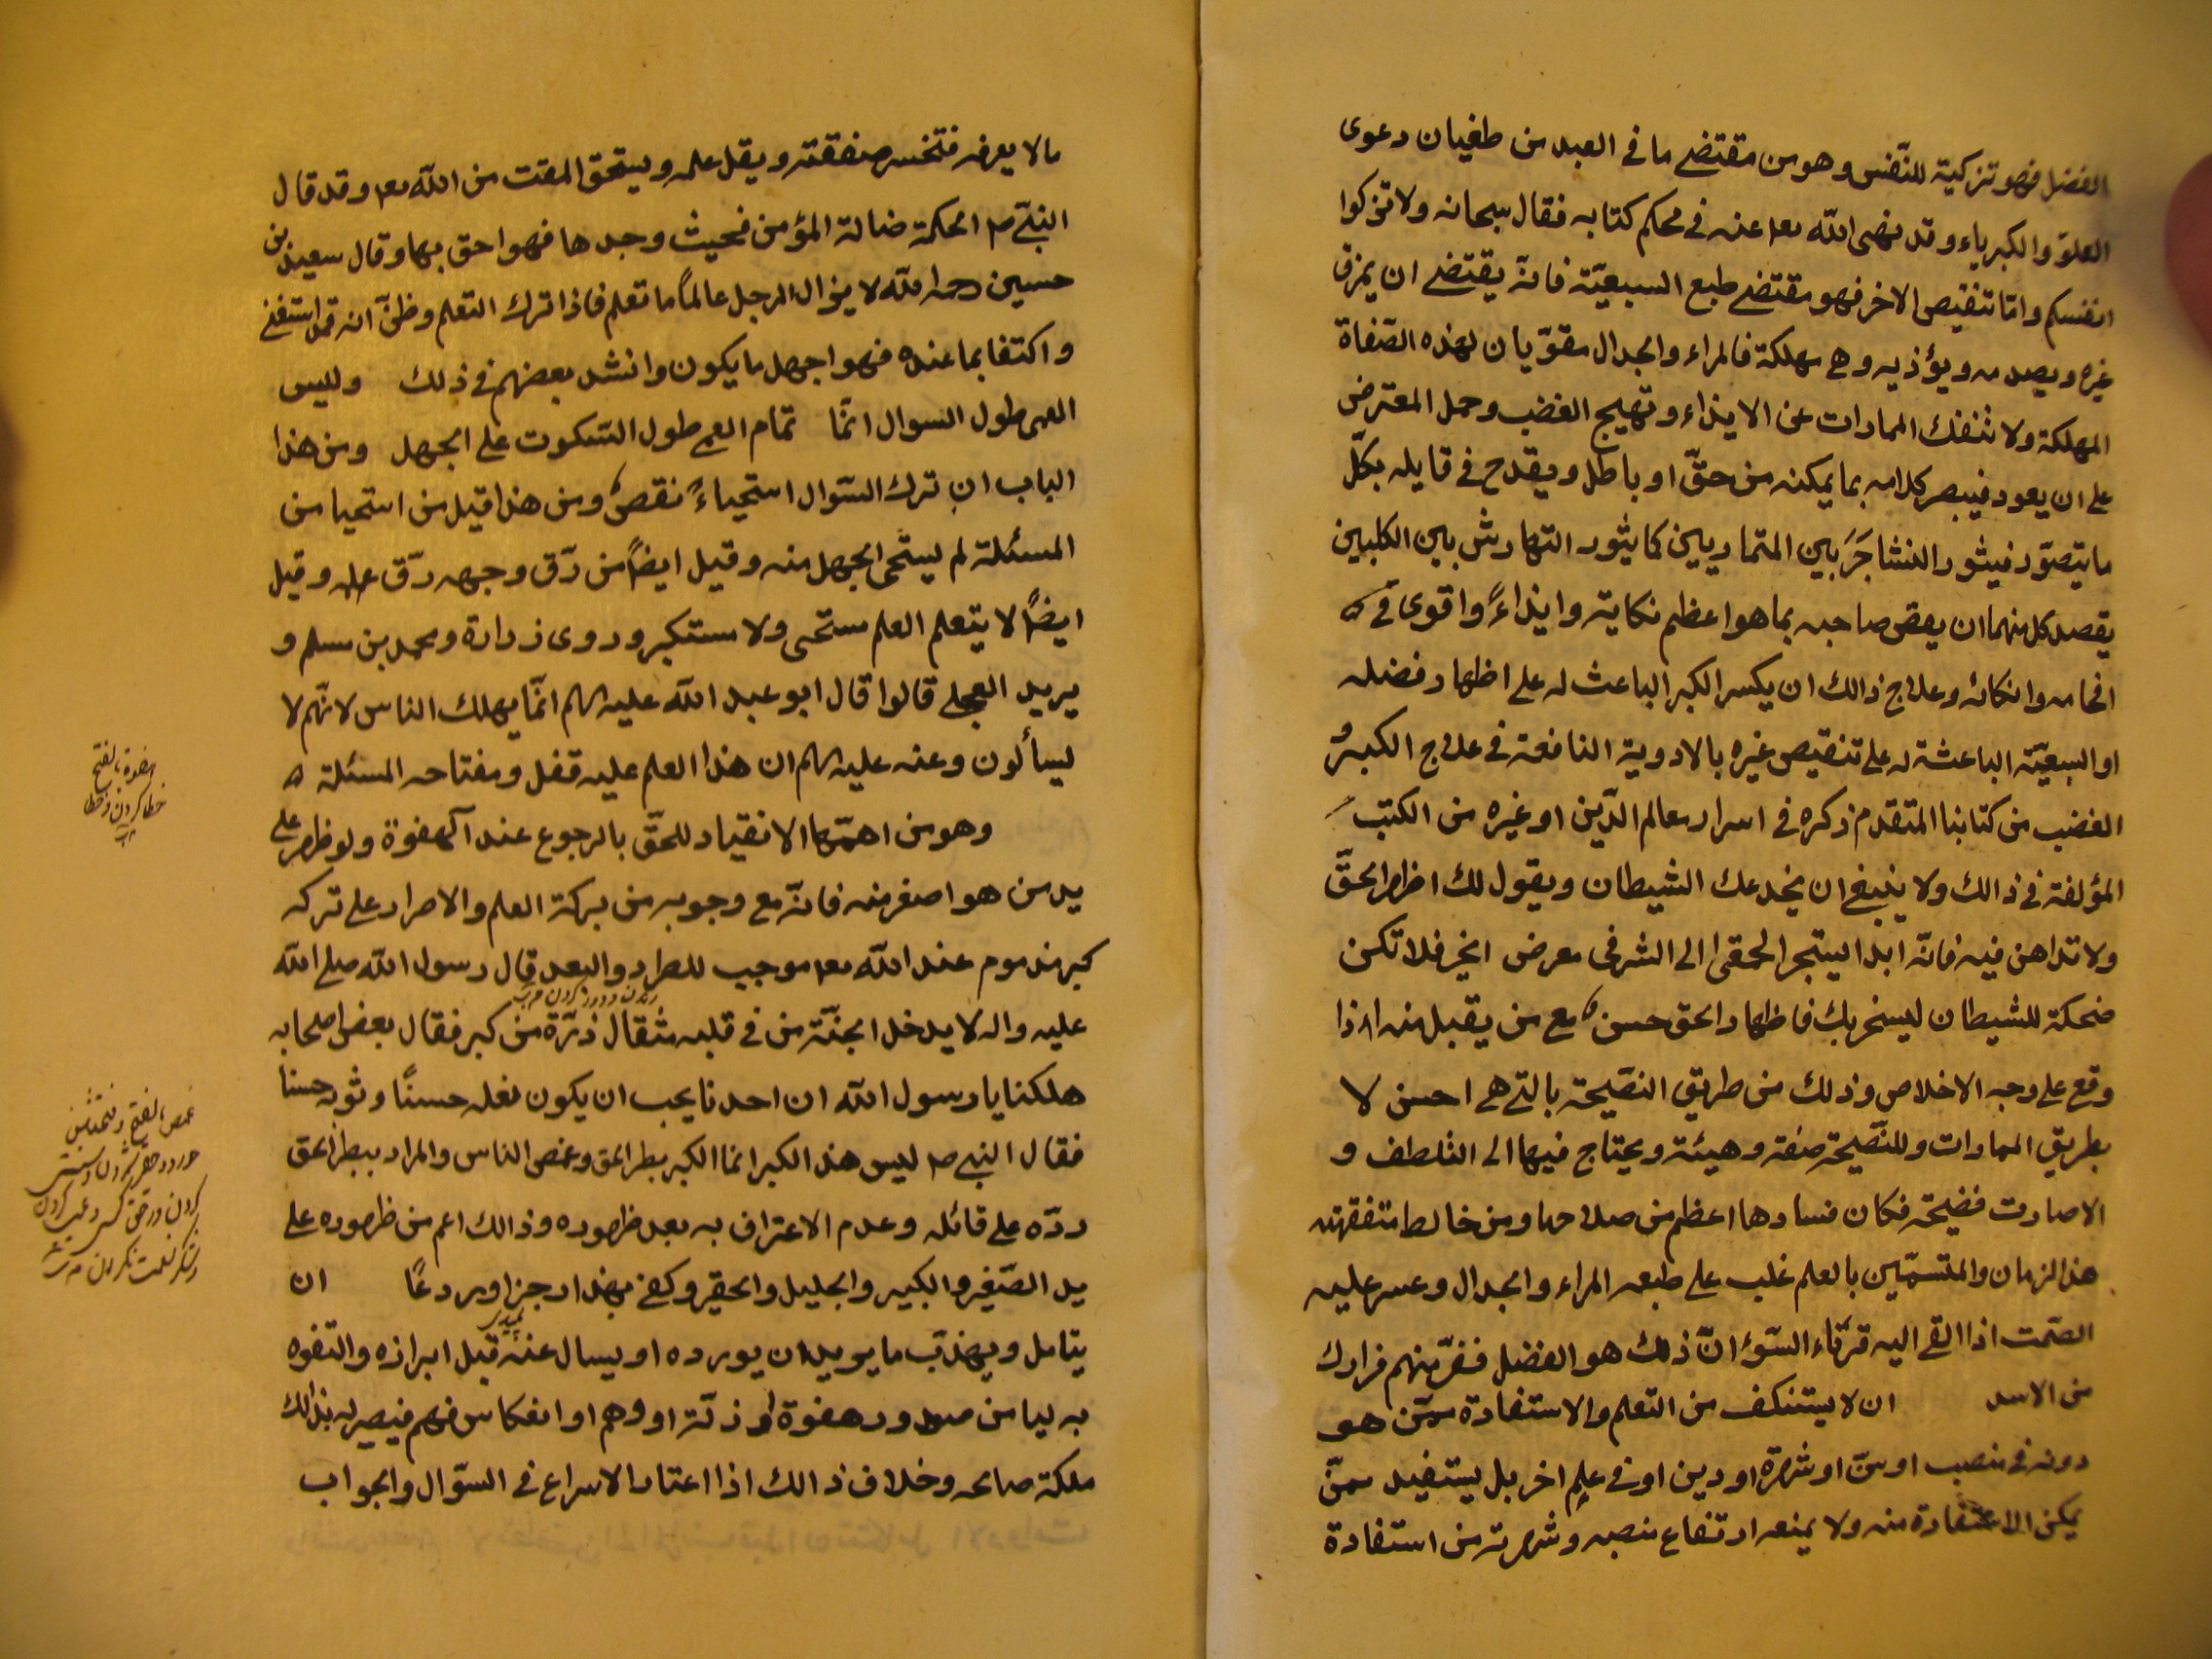 الفضل فهو تزكية للنّفس وهو من مقتضے ما فى العبد من طغيان دعوى
العلوّ والكبرياء وقد نهى اللّه تعه عنه فى محكم كتابه فقال سبحانه ولا تزكوا
انفسكم وامّا تنقيص الاخر فهو مقتضے طبع السبعيّة فانّه يقتضے ان يمزق
غيره ويصدمه ويؤذيه وهى مهلكة فالمراء والجدال مقوّيان لهذه الصّفاة
المهلكة ولا تنفك الممارات عن الايذاء وتهيج الغضب وحمل المعترض
على ان يعود فيبصر كلامه بما يمكنه من حقّ او باطل ويقدح فى قايله بكلّ
ما يتصوّر فيثور التشاجَرَ بين المتماريين كما يثور التهارش بين الكلبين
يقصد كل منهما ان يعض صاحبه بما هو اعظم نكاية وايذاءً واقوى فى
افحامه وانكائه وعلاج ذالك ان يكسر الكبر الباعث له على اظهار فضله
او السبعيّة الباعثة له على تنقيص غيره بالادوية النافعة فى علاج الكبر و
الغضب من كتابنا المتقدم ذكره فى اسرار معالم الدّين او غيره من الكتب
المؤلفة فى ذالك ولا ينبغے ان يخدعك الشيطان ويقول لك اظهر الحقّ
ولا تداهن فيه فانّه ابدا يستجر الحمقى الى الشر فى معرض الخير فلا تكن
ضحكة للشيطان ليسخر بك فاظهار الحق حسن مع من يقبل منه اذا
وقع على وجه الاخلاص وذلك من طريق النصّيحة بالتى هى احسن لا
بطريق الممارات وللنّصيحة صفة وهيئة ويحتاج فيها الى التلطف و
الا صارت فضيحة فكان فسادها اعظم من صلاحها ومن خالط متفقهة
هذا الزمان والمتسمّين بالعلم غلب على طبعه المراء والجدال وعسر عليه
الصّمت اذا القے اليه قرناء السّوء انّ ذلك هو الفضل ففرّ منهم فرارك
من الاسد ان لا يستنكف من التعلم والاستفادة ممّن هو
دونه فى منصب او سنّ او شهرة او دين او فى علم اخر بل يستفيد ممّن
يمكن الاستفادة منه ولا يمنعه ارتفاع منصبه وشهرته من استفادة
ما لا يعرفه فتخسر صفقته ويقل علمه ويستحق المقت من اللّه تعه وقد قال
النبّى ص الحكمة ضالة المؤمن فحيث وجدها فهو احق بها وقال سعيد بن
حسين رحمه اللّه لا يزال الرجل عالمًا ما تعلم فاذا ترك التعلم وظنّ انه قد استغنى
واكتفا بما عنده فهو اجهل ما يكون وانشد بعضهم فى ذلك وليس
العمى طول السوال انمّا تمام العمى طول السّكوت على الجهل ومن هذا
الباب ان ترك السّوال استحياءً نقص ومن هذا قيل من استحيا من
المسئلة لم يستحى الجهل منه وقيل ايضًا من رّق وجهه رّق علمه وقيل
ايضًا لا يتعلم العلم مستحى ولا مستكبر وروى زرارة ومحمد بن مسلم و
بريد العجلى قالوا قال ابو عبد اللّه عليه الم انمّا يهلك الناس لانّهم لا
يسألون وعنه عليه الم ان هذا العلم عليه قفل ومفتاحه المسئلة
وهو من اهمّها الانقياد للحقّ بالرجوع عند الهفوة ولو ظهر على
يد من هو اصغر منه فانّه مع وجوبه من بركة العلم والاصرار على تركه
كبر مذموم عند اللّه تعه موجب للطرد والبعد قال رسول اللّه صلى اللّه
عليه واله لا يدخل الجنّة من فى قلبه مثقال ذرّة من كبر فقال بعض اصحابه
هلكنا يا رسول اللّه ان احدنا يحب ان يكون نعله حسنًا وثوبه حسنا
فقال النبى ص ليس هذا الكبر انما الكبر بطر الحق وغمص الناس والمراد ببطر الحق
ردّه على قائله وعدم الاعتراف به بعد ظهوره وذالك اعم من ظهوره على
يد الصّغير والكبير والجليل والحقير وكفى بهذا رجزا وردعًا ان
يتامل ويهذب ما يريد ان يورده او يسال عنه قبل ابرازه والتفوه
به ليامن صدور هفوة او زلّة او وهم او انعكاس فهم فيصير له بذالك
ملكة صالحه وخلاف ذالك اذا اعتاد الاسراع فى السّوال والجواب
هفوة بالفتح
خطا كردن وخطا